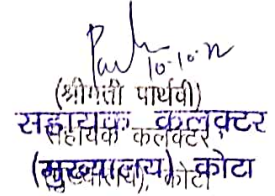 10-10-22
(श्रीमती पार्थवी)
सहायक कलक्टर
सहायक कलक्टर
(मुख्यालय) कोटा
(मुख्यालय), कोटा